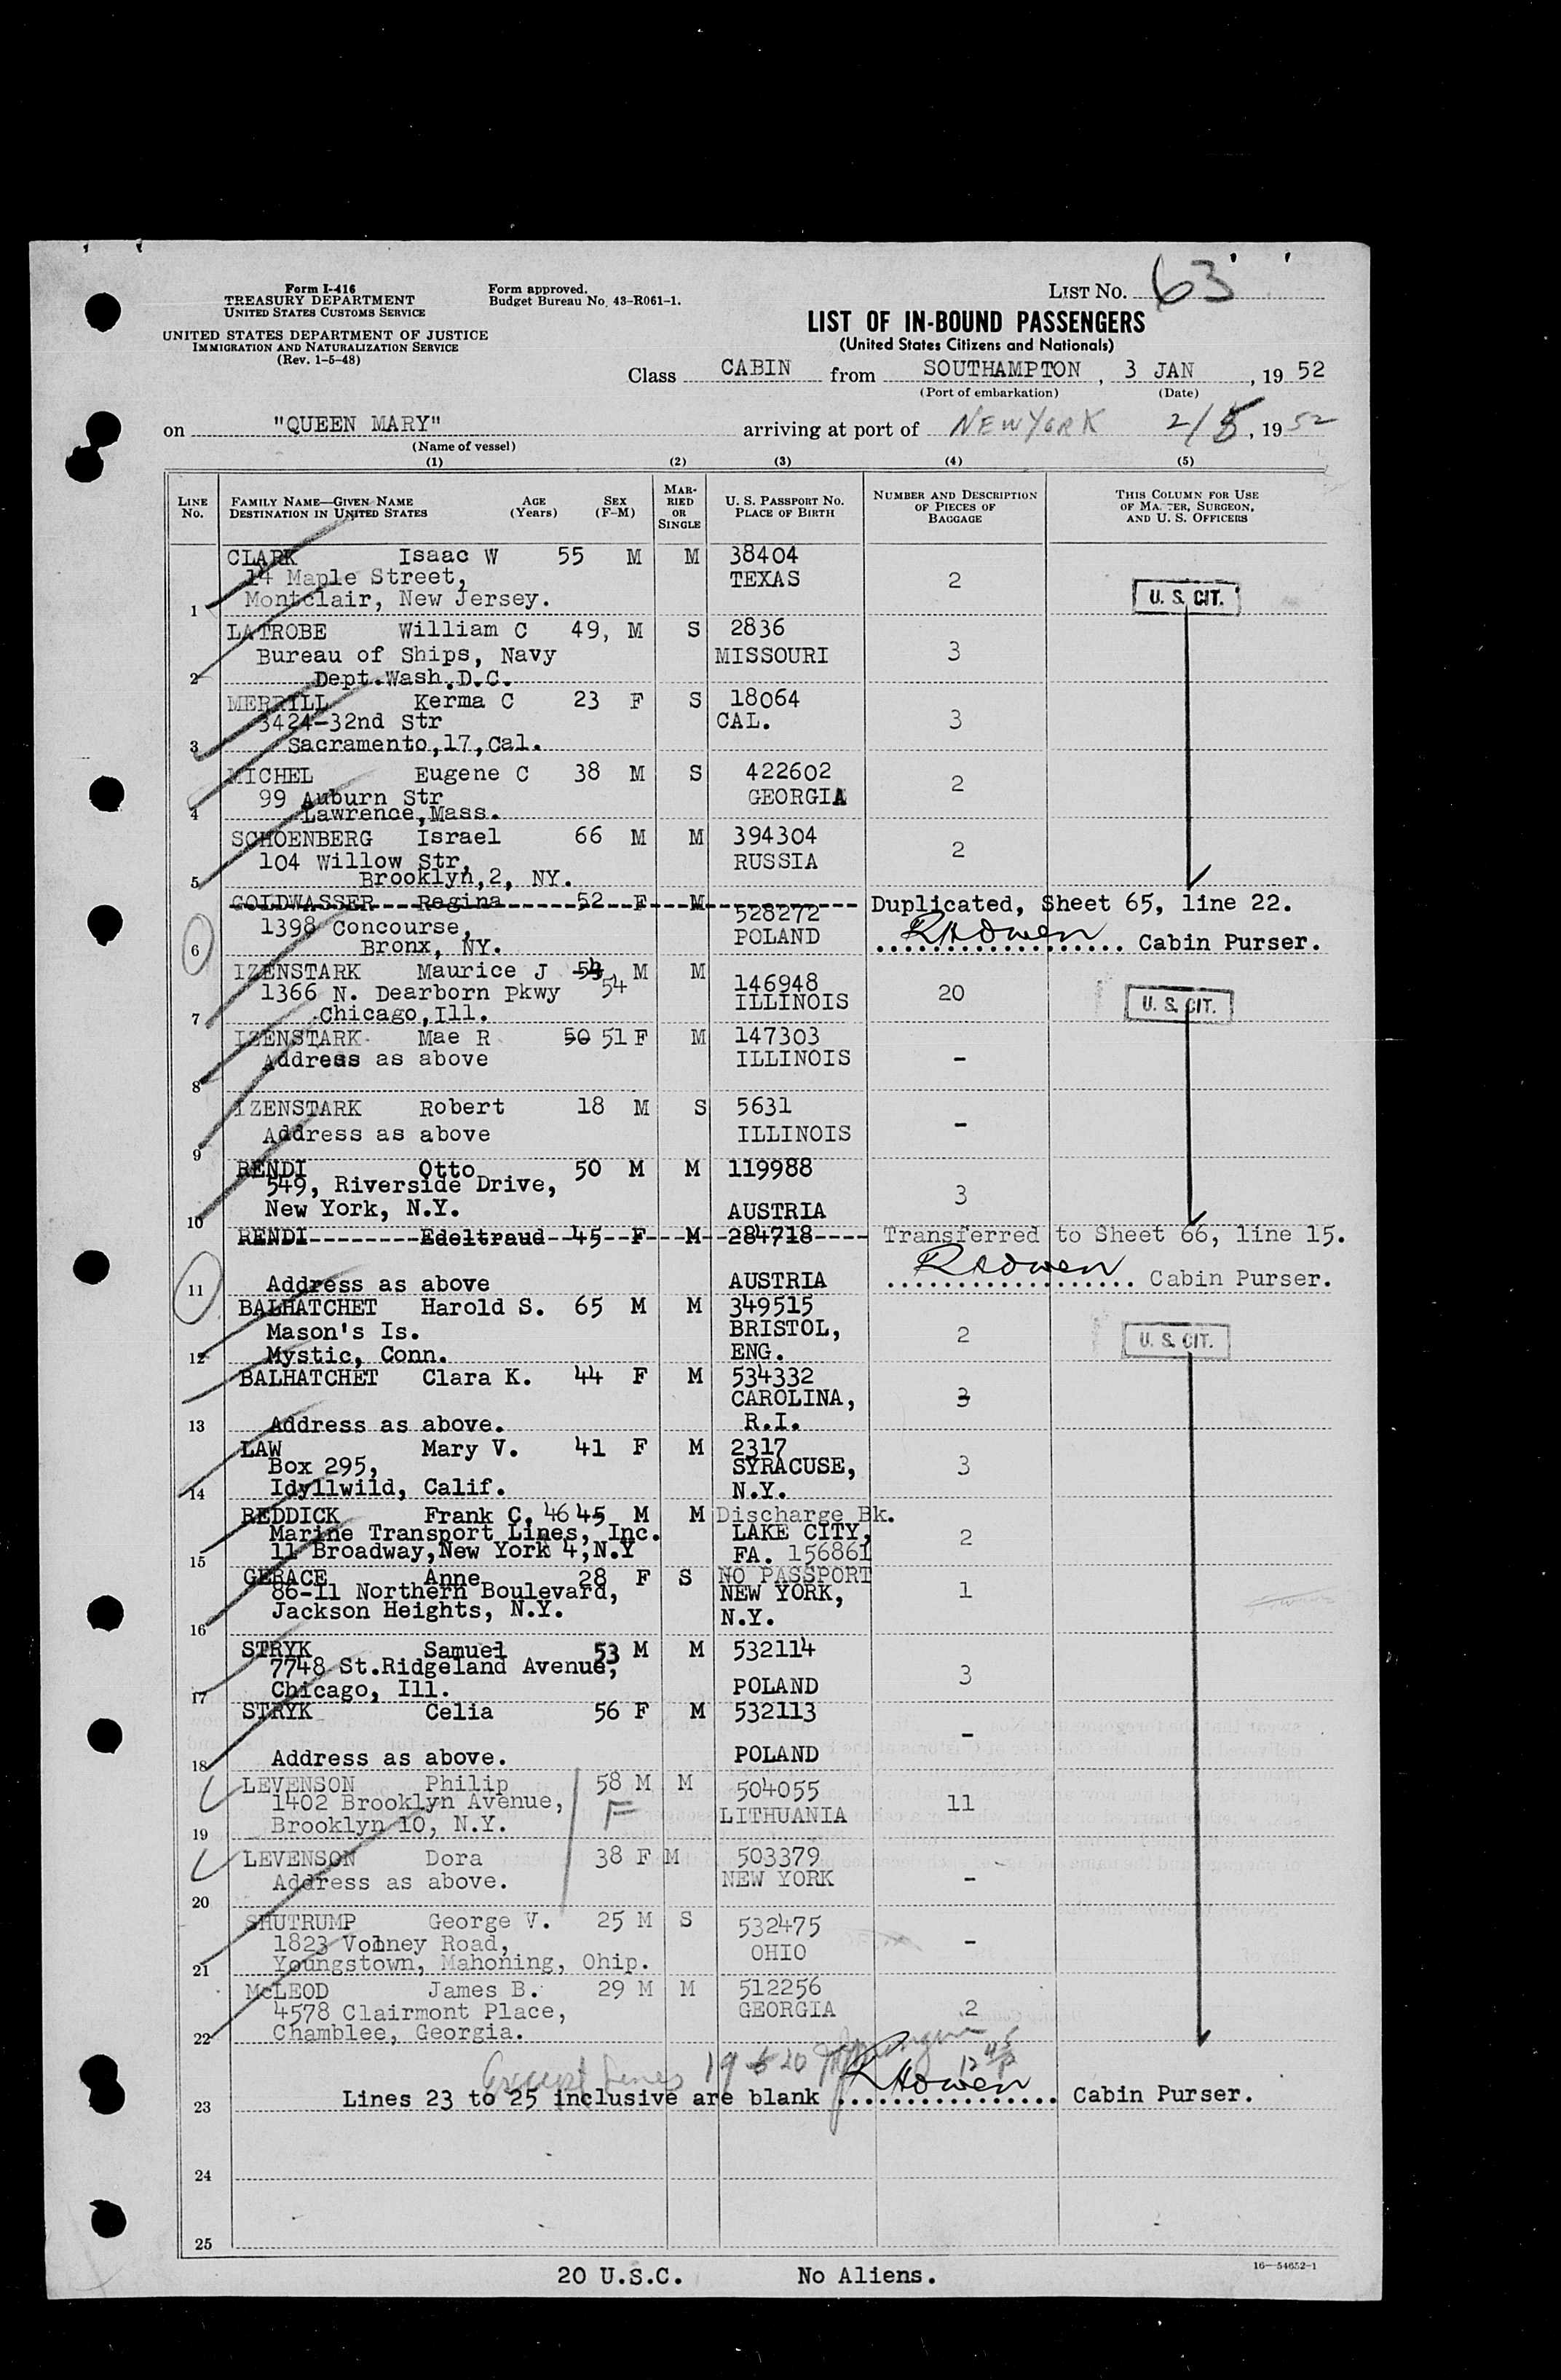 Form I-416
TREASURY DEPARTMENT
UNITED STATES CUSTOMS SERVICE
UNITED STATES DEPARTMENT OF JUSTICE
IMMIGRATION AND NATURALIZATION SERVICE
(Rev. 1-5-48)
Form approved.
Budget Bureau No. 43-R061-1.
LIST NO. 63
LIST OF IN-BOUND PASSENGERS
(United States Citizens and Nationals)
Class CABIN from SOUTHAMPTON, 3 JAN, 19 52
(Port of embarkation) (Date)
on "QUEEN MARY" arriving at port of NEW YORK 2/5, 19 52
(Name of vessel)
(1) (2) (3) (4) (5)
LINE NO.
FAMILY NAME—GIVEN NAME
DESTINATION IN UNITED STATES
AGE (Years)
SEX (F-M)
MARRIED OR SINGLE
U. S. PASSPORT NO.
PLACE OF BIRTH
NUMBER AND DESCRIPTION OF PIECES OF BAGGAGE
THIS COLUMN FOR USE OF MASTER, SURGEON, AND U. S. OFFICERS
CLARK Isaac W 55 M M 38404
14 Maple Street, TEXAS 2
1 Montclair, New Jersey. U. S. CIT.
LATROBE William C 49, M S 2836
Bureau of Ships, Navy MISSOURI 3
2 Dept.Wash.D.C.
MERRILL Kerma C 23 F S 18064
3424-32nd Str CAL. 3
3 Sacramento,17,Cal.
MICHEL Eugene C 38 M S 422602
99 Auburn Str GEORGIA 2
4 Lawrence,Mass.
SCHOENBERG Israel 66 M M 394304
104 Willow Str, RUSSIA 2
5 Brooklyn,2, NY.
GOLDWASSER Regina 52 F M 528272 Duplicated, Sheet 65, line 22.
1398 Concourse, POLAND
6 Bronx, NY. RHOwen Cabin Purser.
IZENSTARK Maurice J 54 M M 146948
1366 N. Dearborn Pkwy 54 ILLINOIS 20
7 Chicago,Ill. U. S. CIT.
IZENSTARK Mae R 50 51 F M 147303
Address as above ILLINOIS -
8
IZENSTARK Robert 18 M S 5631
Address as above ILLINOIS -
9
RENDI Otto 50 M M 119988
549, Riverside Drive, 3
10 New York, N.Y. AUSTRIA
RENDI Edeltraud 45 F M 284718 Transferred to Sheet 66, line 15.
11 Address as above AUSTRIA RHOwen Cabin Purser.
BALHATCHET Harold S. 65 M M 349515
Mason's Is. BRISTOL, 2 U. S. CIT.
12 Mystic, Conn. ENG.
BALHATCHET Clara K. 44 F M 534332
CAROLINA, 3
13 Address as above. R.I.
LAW Mary V. 41 F M 2317
Box 295, SYRACUSE, 3
14 Idyllwild, Calif. N.Y.
REDDICK Frank C. 46 45 M M Discharge Bk.
Marine Transport Lines, Inc. LAKE CITY, 2
15 11 Broadway,New York 4,N.Y FA. 156861
GERACE Anne 28 F S NO PASSPORT
86-11 Northern Boulevard, NEW YORK, 1
16 Jackson Heights, N.Y. N.Y.
STRYK Samuel 53 M M 532114
7748 St.Ridgeland Avenue, 3
17 Chicago, Ill. POLAND
STRYK Celia 56 F M 532113
-
18 Address as above. POLAND
LEVENSON Philip 58 M M 504055
1402 Brooklyn Avenue, F LITHUANIA 11
19 Brooklyn 10, N.Y.
LEVENSON Dora 38 F M 503379
Address as above. NEW YORK -
20
SHUTRUMP George V. 25 M S 532475
1823 Volney Road, OHIO -
21 Youngstown, Mahoning, Ohip.
McLEOD James B. 29 M M 512256
4578 Clairmont Place, GEORGIA 2
22 Chamblee, Georgia.
Except Lines 19 & 20
23 Lines 23 to 25 inclusive are blank RHOwen Cabin Purser.
24
25
20 U.S.C. No Aliens.
16—54652-1